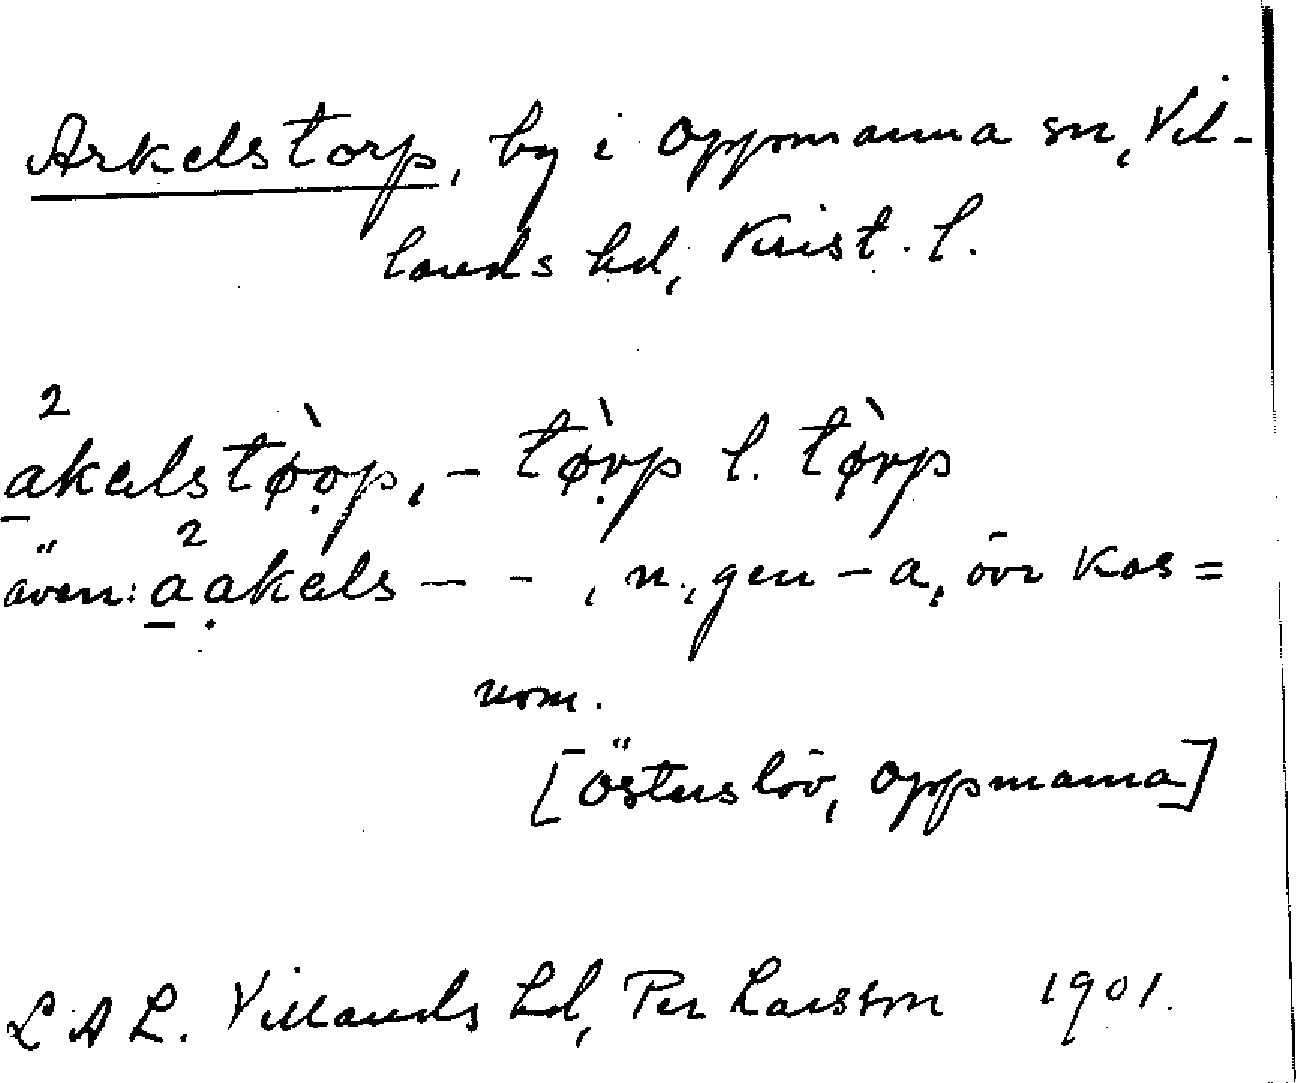 Arkelstorp, by i Oppmanna sn, Vil-
lands hd, Krist. l.
2
akalstø̀ọp, - tø̀ṛp l. tø̀rp
2
även: aạkals - - , n., gen - a, övr kas =
nom.
[Österslöv, Oppmanna]
L A L. Villands hd, Per Larsson 1901.